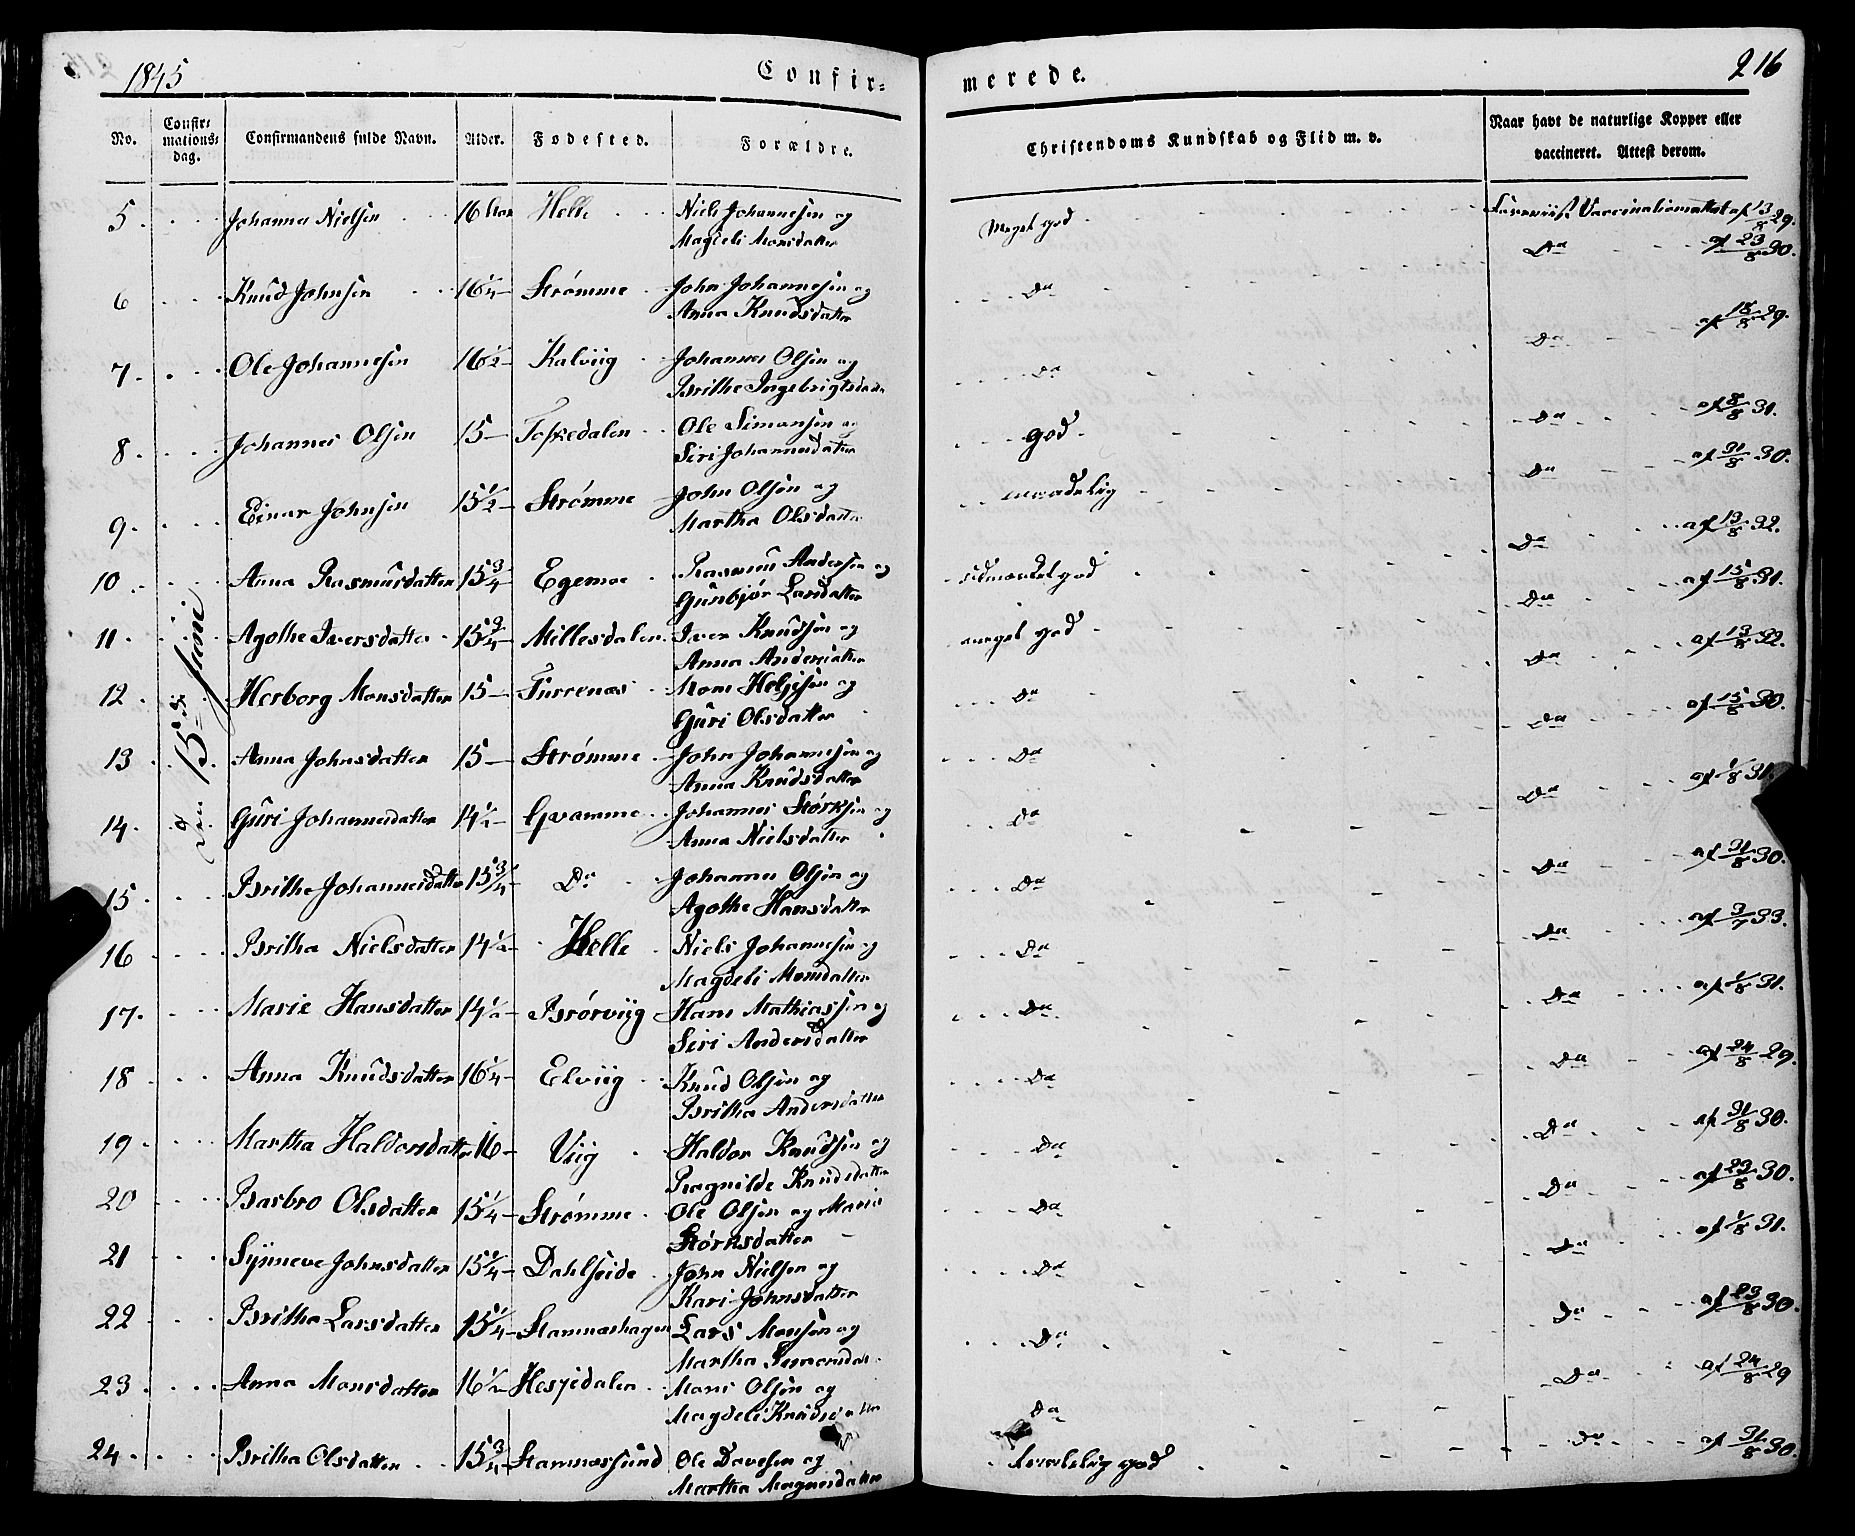 1845
Confir-
merede.
216
No.
Confir-
mations-
dag.
Confirmandens fulde Navn.
Alder.
Fødested.
Forældre.
Christendoms Kundskab og Flid m. v.
Naar havt de naturlige Kopper eller
vaccineret. Attest derom.
Den 15de Juni
5 Johannes Nielsen 16 Helle Niels Johannesen og Meget god Vaccinationsattest af 13/8 29.
Magdeli Monsdatter
6 Knud Johnsen 16 1/4 Strømme John Johannesen og Do Do af 23/8 30.
Anna Knudsdatter
7 Ole Johannesen 16 1/2 Kalviig Johannes Olsen og Do Do af 18/8 29.
Brithe Ingebrigtsdatter
8 Johannes Olsen 15 Toskedalen Ole Simonsen og god Do af 8/8 31.
Siri Johannesdatter
9 Einar Johnsen 15 1/2 Strømme John Olsen og maadelig Do af 31/8 30.
Martha Olsdatter
10 Anna Rasmusdatter 15 3/4 Egemoe Rasmus Andersen og udmærket god Do af 13/8 32.
Gunbjør Larsdatter
11 Agathe Iversdatter 15 Millesdalen Iver Knudsen og meget god Do af 15/8 31.
Anna Andersdatter
12 Herborg Monsdatter 15 Furrenæs Mons Helgesen og Do Do af 13/8 32.
Guri Olsdatter
13 Anna Johnsdatter 15 Strømme John Johannesen og Do Do af 15/8 30.
Anna Knudsdatter
14 Guri Johannesdatter 14 1/2 Gvamme Johannes Størksen og Do Do af 1/8 31.
Anna Nielsdatter
15 Brithe Johannesdatter 15 3/4 Do Johannes Olsen og Do Do af 31/8 30.
Agathe Hansdatter
16 Britha Nielsdatter 14 1/2 Helle Niels Johannesen og Do Do af 3/7 33.
Magdeli Monsdatter
17 Marie Hansdatter 14 1/2 Brørviig Hans Mathiassen og Do Do af 1/8 31.
Siri Andersdatter
18 Anna Knudsdatter 16 1/4 Elviig Knud Olsen og Do Do af 24/8 29.
Britha Andersdatter
19 Martha Haldorsdatter 16 Viig Haldor Knudsen og Do Do af 31/8 30.
Ragnilde Knudsdatter
20 Barbro Olsdatter 15 1/4 Strømme Ole Olsen og Marie Do Do af 23/8 30.
Størksdatter
21 Synneve Johnsdatter 15 1/4 Dahlseide John Nielsen og Do Do af 1/8 31.
Kari Johnsdatter
22 Britha Larsdatter 15 1/4 Stamneshagen Lars Monsen og Do Do af 23/8 30.
Martha
23 Anna Monsdatter 16 1/2 Hesjedalen Mons Olsen og Do Do af 24/8 29
Magdeli Knudsdatter
24 Britha Olsdatter 15 3/4 Stamnessund Ole Davesen og god Do af 31/8 30.
Martha Magnesdatter